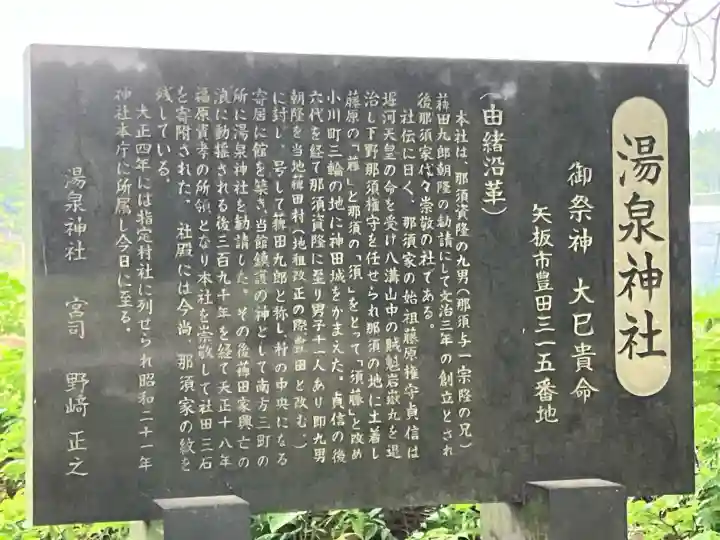 湯泉神社
御祭神 大巳貴命
矢板市豊田三一五番地
(由緒沿革)
本社は、那須資隆の九男(那須与一宗隆の兄)
蕱田九郎朝隆の勧請にして文治三年の創立とされ
後那須家代々崇敬の社である。
社伝に曰く、那須家の始祖藤原権守貞信は
堀河天皇の命を受け八溝山中の賊魁岩嶽丸を退
治し下野那須権守を任せられ那須の地に土着し
藤原の「藤」と那須の「須」をとって「須藤」と改め
小川町三輪の地に神田城をかまえた。貞信の後
六代を経て那須資隆に至り男子十一人あり即九男
朝隆を当地蕱田村(地租改正の際豊田と改む。)
に封し、号して蕱田九郎と称し村の中央になる
寄居に館を築き当館鎮護の神として南方三町の
所に湯泉神社を勧請した。その後蕱田家興亡の
浪に動揺される後三百九十年を経て天正十八年
福原資孝の所領となり本社を崇敬して社田三石
を寄附された。社殿には今尚、那須家の紋を
残している。
大正四年には指定村社に列せられ昭和二十一年
神社本庁に所属し今日に至る。
湯泉神社 宮司 野﨑正之